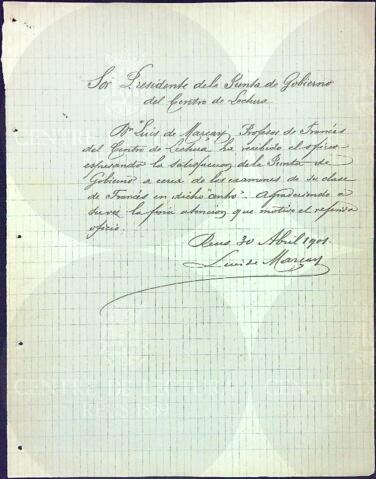 Sor. Presidente de la Junta de Gobierno
del Centro de Lectura
Dn Luis de Marçay Profesor de Francés
del Centro de Lectura ha recibido el oficio
espresando la satisfaccion de la Junta de
Gobierno a cerca de los examenes de su clase
de Francés en dicho "Centro". Agradeciendo a
su vez la fina atencion que motiva el referido
oficio.
Reus 30 Abril 1901.
Luis de Marçay
CENTRE DE LECTURA
REUS 1859